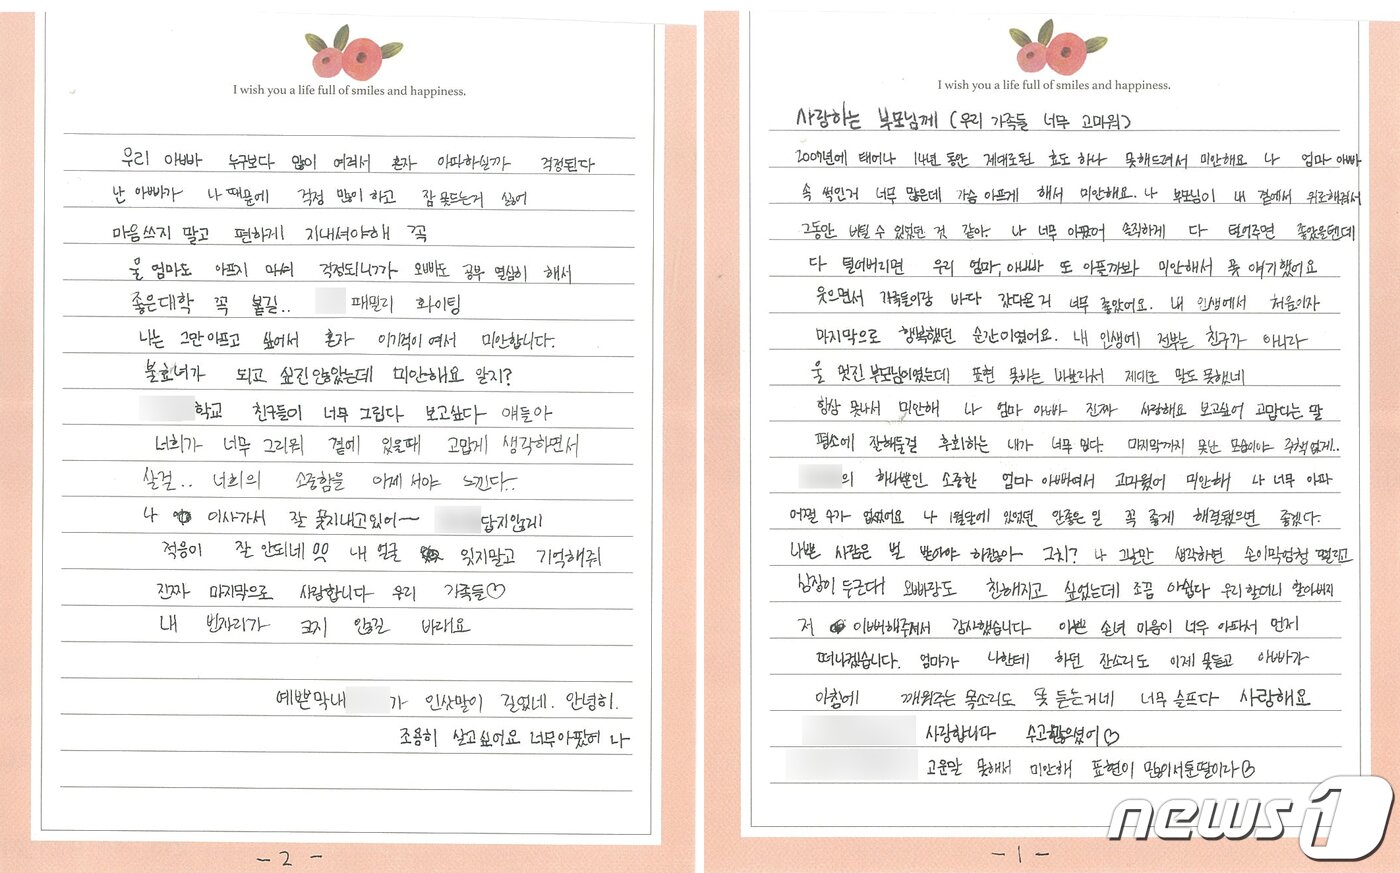 I wish you a life full of smiles and happiness.
사랑하는 부모님께 (우리 가족들 너무 고마워)
2007년에 태어나 14년 동안 제대로된 효도 하나 못해드려서 미안해요 나 엄마 아빠
속 썩인거 너무 많은데 가슴 아프게 해서 미안해요. 나 부모님이 내 곁에서 위로해줘서
그동안 버틸 수 있었던 것 같아. 나 너무 아팠어 솔직하게 다 털어주면 좋았을텐데
다 털어버리면 우리 엄마, 아빠 또 아플까봐 미안해서 못 얘기했어요
웃으면서 가족들이랑 바다 갔다온거 너무 좋았어요. 내 인생에서 처음이자
마지막으로 행복했던 순간이였어요. 내 인생에 전부는 친구가 아니라
울 멋진 부모님이였는데 표현 못하는 바보라서 제대로 말도 못했네
항상 못나서 미안해 나 엄마 아빠 진짜 사랑해요 보고싶어 고맙다는 말
평소에 잔해둘걸 후회하는 내가 너무 밉다. 마지막까지 못난 모습이야 주책없게..
의 하나뿐인 소중한 엄마 아빠여서 고마웠어 미안해 나 너무 아파
어쩔 수가 없었어요 나 1월달에 있었던 안좋은 일 꼭 좋게 해결됐으면 좋겠다.
나쁜 사람은 벌 받아야 하잖아 그치? 나 그날만 생각하면 손이 막 엄청 떨리고
심장이 두근대 오빠랑도 친해지고 싶었는데 조끔 아쉽다 우리 할머니 할아버지
저 이뻐해주셔서 감사했습니다 이쁜 손녀 마음이 너무 아파서 먼저
떠나겠습니다. 엄마가 나한테 하던 잔소리도 이제 못듣고 아빠가
아침에 깨워주는 목소리도 못 듣는거네 너무 슬프다 사랑해요
사랑합니다 수고많으셨어♡
고운말 못해서 미안해 표현이 많이서툰딸이라♡
- 1 -
I wish you a life full of smiles and happiness.
우리 아빠 누구보다 많이 여려서 혼자 아파하실까 걱정된다
난 아빠가 나 때문에 걱정 많이 하고 잠 못드는거 싫어
마음쓰지 말고 편하게 지내셔야해 꼭
울 엄마도 아프지 마셔 걱정되니까 오빠도 공부 열심히 해서
좋은대학 꼭 붙길.. 패밀리 화이팅
나는 그만 아프고 싶어서 혼자 이기적이여서 미안합니다.
불효녀가 되고 싶진 않았는데 미안해요 알지?
학교 친구들이 너무 그립다 보고싶다 얘들아
너희가 너무 그리워 곁에 있을때 고맙게 생각하면서
살걸.. 너희의 소중함을 이제 서야 느낀다..
나 이사가서 잘 못지내고있어~ 답지않게
적응이 잘 안되네 00 내 얼굴 잊지말고 기억해줘
진짜 마지막으로 사랑합니다 우리 가족들♡
내 빈자리가 크지 않길 바래요
예쁜막내 가 인삿말이 길었네. 안녕히.
조용히 살고싶어요 너무아팠어 나
- 2 -
news1